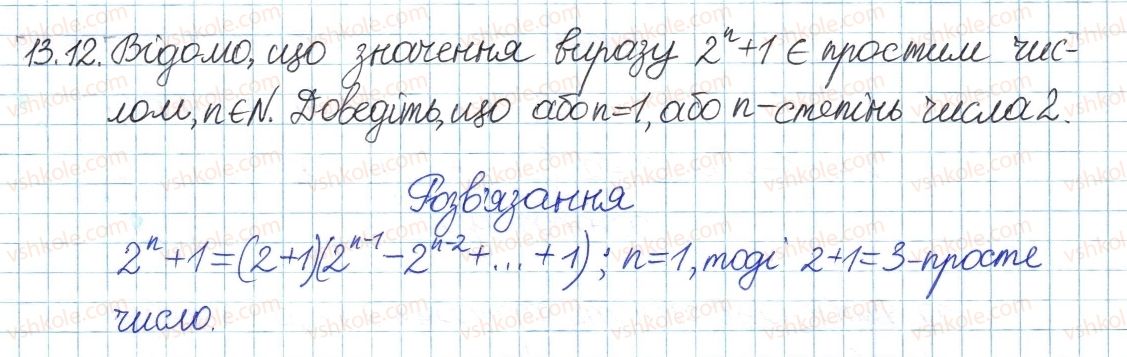 13.12. Відомо, що значення виразу 2ⁿ+1 є простим чис-
лом, n∈N. Доведіть, що або n=1, або n – степінь числа 2.
Розв'язання
2ⁿ+1=(2+1)(2ⁿ⁻¹-2ⁿ⁻²+...+1); n=1, тоді 2+1=3-просте
число.